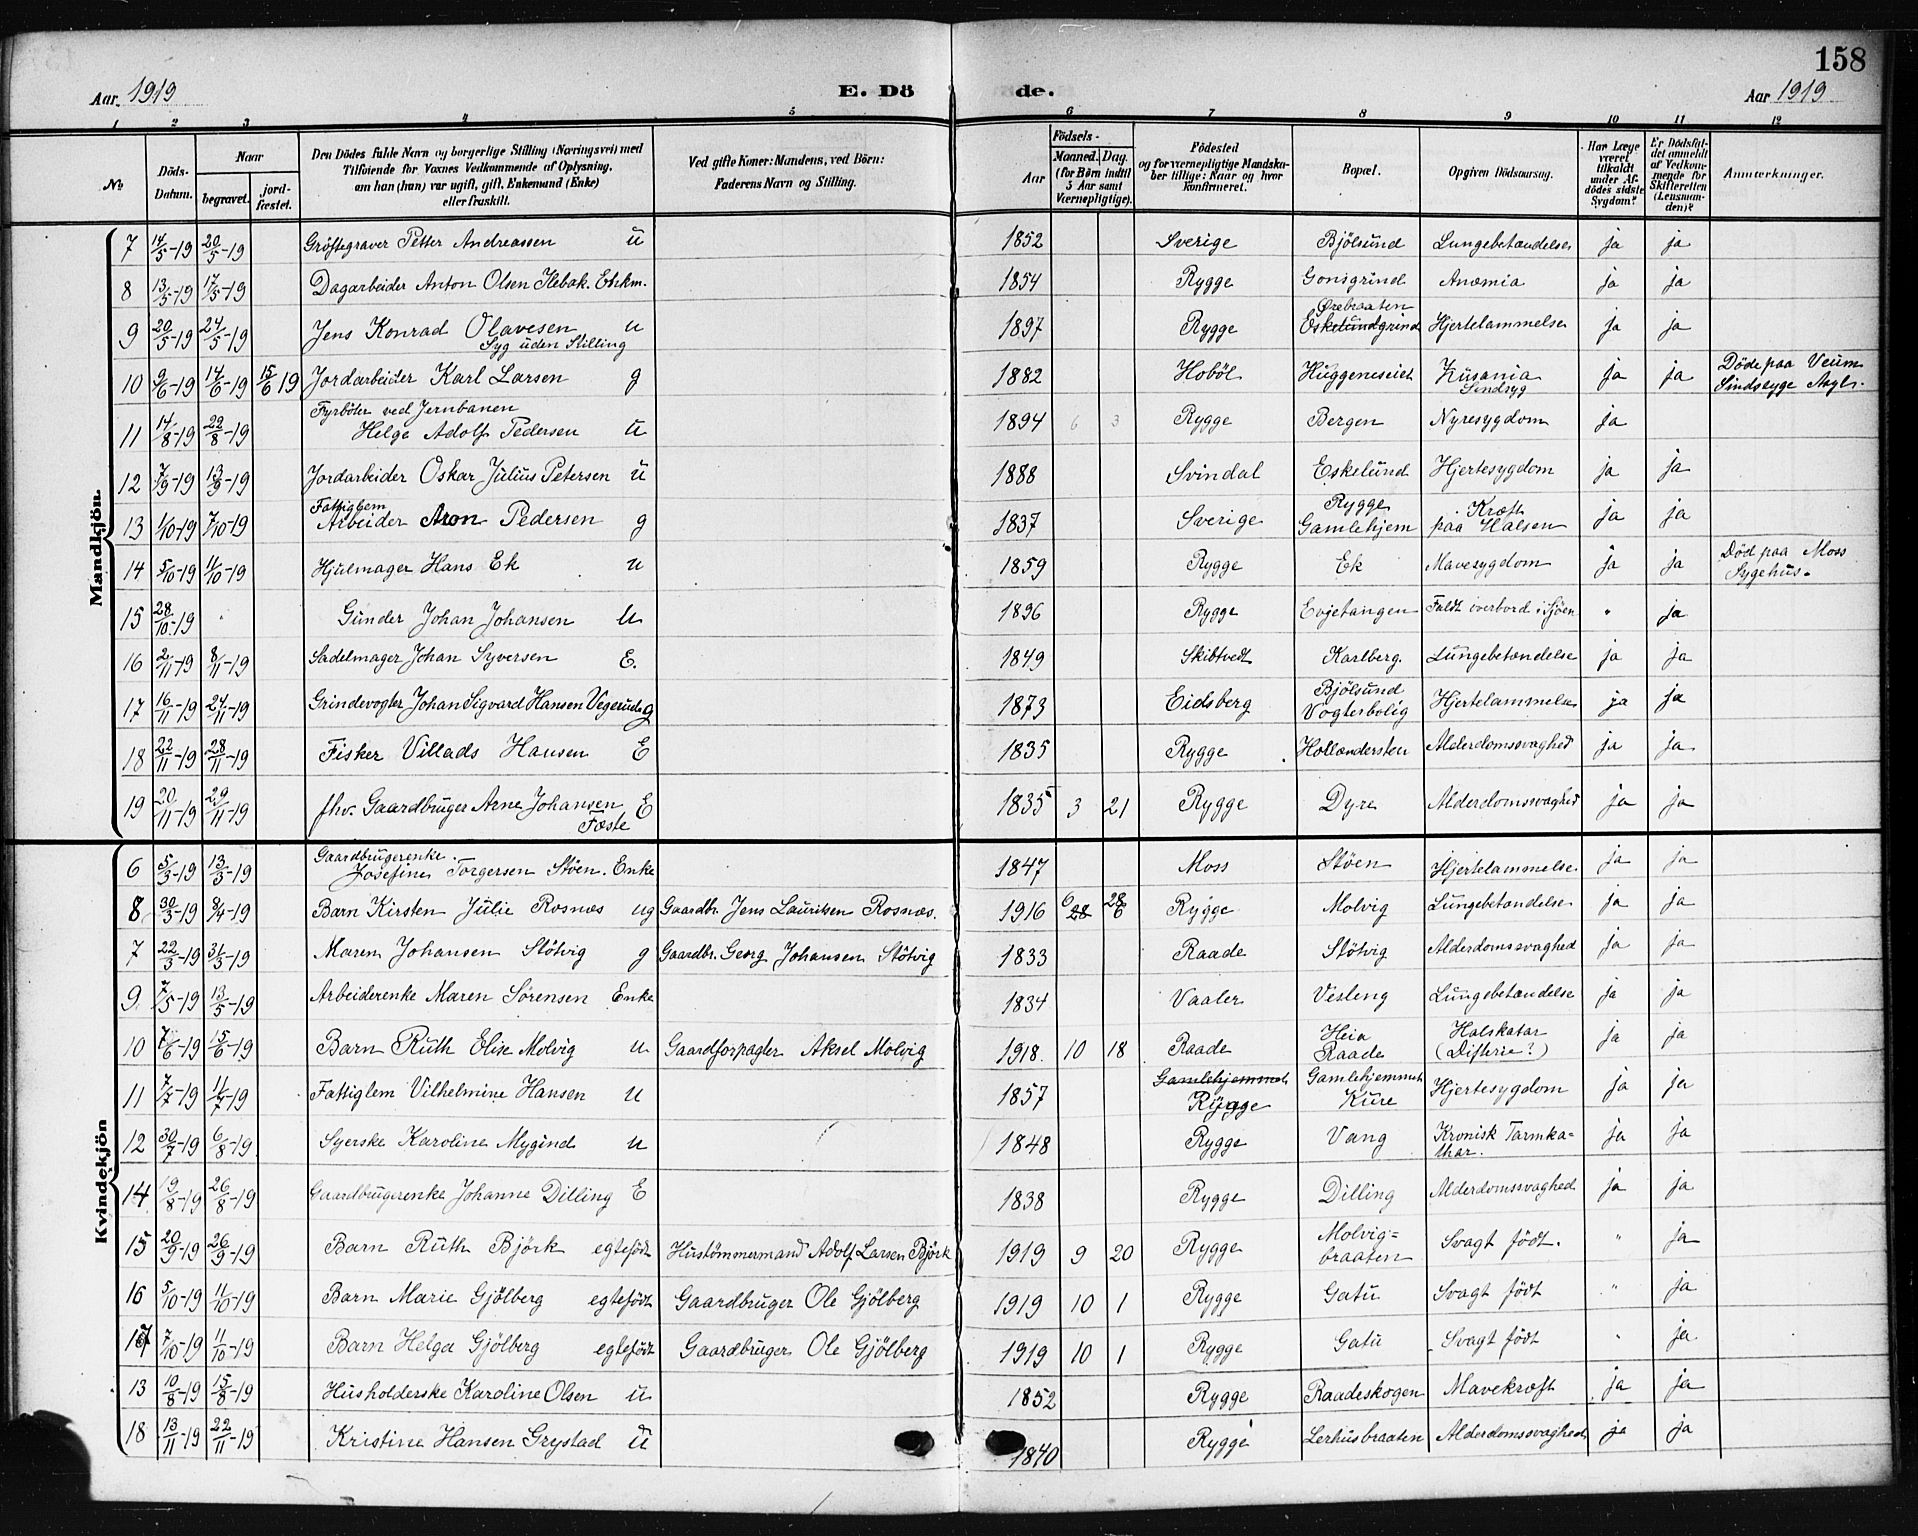 158
Aar. 1919 E. Dö de. Aar 1919
1 2 3 4 5 6 7 8 9 10 11 12
No
Döds-Datum.
Naar
begravet. jordfæstet.
Den Dödes fulde Navn og borgerlige Stilling (Næringsvei) med
Tilföiende for Voxnes Vedkommende af Oplysning,
om han (hun) var ugift, gift, Enkemand (Enke)
eller fraskilt.
Ved gifte Koner: Mandens, ved Börn:
Faderens Navn og Stilling.
Födsels-
Aar Maaned. Dag.
(for Börn indtil
5 Aar samt
Værnepligtige).
Födested
og for værnepligtige Mandskaber tillige: Naar og hvor
konfirmeret.
Bopæl.
Opgiven Dödsaarsag.
Har Læge været tilkaldt under Afdödes sidste Sygdom?
Er Dödsfaldet anmeldt af Vedkommende for Skifteretten (Lensmanden)?
Anmerkninger.
Mandkjön.
7 14/5-19 20/5-19 Gröftegraver Petter Andreassen u 1852 Sverige Bjölsund Lungebetændelse ja ja
8 13/5-19 17/5-19 Dagarbeider Anton Olsen Ilebak. Enkm. 1854 Rygge Gonsgrind Anæmia ja ja
9 20/5-19 24/5-19 Jens Konrad Olavesen u 1897 Rygge Ørebraaten Eskelundgrind Hjertelammelse ja ja
Syg uden Stilling
10 9/6-19 14/6-19 15/6 19 Jordarbeider Karl Larsen g 1882 Hoböl Huggeneseiet Sindsyg ja ja Döde paa Veum
Sindssyge Asyl.
Fyrböter ved Jernbanen
11 14/8-19 22/8-19 Helge Adolf Pedersen u 1894 6 3 Rygge Bergen Nyresygdom ja
12 7/9-19 13/9-19 Jordarbeider Oskar Julius Petersen u 1888 Svindal Eskelund Hjertesygdom ja ja
13 1/10-19 7/10-19 Fattiglem Arbeider Aron Pedersen g 1837 Sverige Rygge Gamlehjem Kræft paa Halsen ja ja
14 5/10-19 11/10-19 Hjulmager Hans Ek u 1859 Rygge Ek Mavesygdom ja ja Död paa Moss
Sygehus.
15 28/10-19 " Gunder Johan Johansen u 1896 Rygge Evjetangen Faldt overbord i Sjöen " ja
16 2/11-19 8/11-19 Sadelmager Johan Syversen E. 1849 Skibtvedt Karlberg. Lungebetændelse ja ja
17 16/11-19 24/11-19 Grindevogter Johan Sigvard Hansen Vegerud g 1873 Eidsberg Bjölsund Vogterbolig Hjertelammelse ja ja
18 22/11-19 28/11-19 Fisker Villads Hansen E 1835 Rygge Hollændersten Alderdomssvaghed ja ja
19 20/11-19 29/11-19 fhv. Gaardbruger Arne Johansen E 1835 3 21 Rygge Dyre Alderdomssvaghed ja ja
Fæste
Kvindekjön
6 5/3-19 13/3-19 Gaardbrugerenke. Josefine Torgersen Stöen. Enke 1847 Moss Stöen Hjertelammelse ja ja
8 30/3-19 8/4-19 Barn Kirsten Julie Rosnæs ug Gaardbr. Jens Lauritsen Rosnæs. 1916 6 28 28 6 Rygge Molvig Lungebetændelse ja ja
7 22/3-19 31/3-19 Maren Johansen Stötvig g Gaardbr. Georg Johansen Stötvig 1833 Raade Stötvig Alderdomssvaghed ja ja
9 7/5-19 13/5-19 Arbeiderenke Maren Sörensen Enke 1834 Vaaler Vesleng Lungebetændelse ja ja
10 7/6-19 15/6-19 Barn Ruth Elise Molvig u Gaardforpagter Aksel Molvig 1918. 10 18 Raade Heia Raade Halskatar (Difterie?) ja ja
11 7/7-19 11/7-19 Fattiglem Vilhelmine Hansen u 1857 Gamlehjemmet Rygge Gamlehjemmet Kure Hjertesygdom ja ja
12 30/7-19 6/8-19 Syerske Karoline Mygind u 1848 Rygge Vang Kronisk Tarmka=
thar. ja ja
14 19/8-19 26/8-19 Gaardbrugerenke Johanne Dilling E 1838 Rygge Dilling Alderdomssvaghed ja ja
15 20/9-19 26/9-19 Barn Ruth Björk egtefödt Hustömmermand Adolf Larsen Björk 1919 9 20 Rygge Molvig=
braaten Svagt födt. " ja
16 5/10-19 11/10-19 Barn Marie Gjölberg egtefödt Gaardbruger Ole Gjölberg 1919 10 1 Rygge Gatu Svagt födt " ja
17 7/10-19 11/10-19 Barn Helga Gjölberg egtefödt Gaardbruger Ole Gjölberg 1919 10 1 Rygge Gatu Svagt födt " ja
13 10/8-19 15/8-19 Husholderske Karoline Olsen u 1852 Rygge Raadeskogen Mavekræft ja ja
18 13/11-19 22/11-19 Kristine Hansen Grystad u 1840 Rygge Lerhusbraaten Alderdomssvaghed ja ja